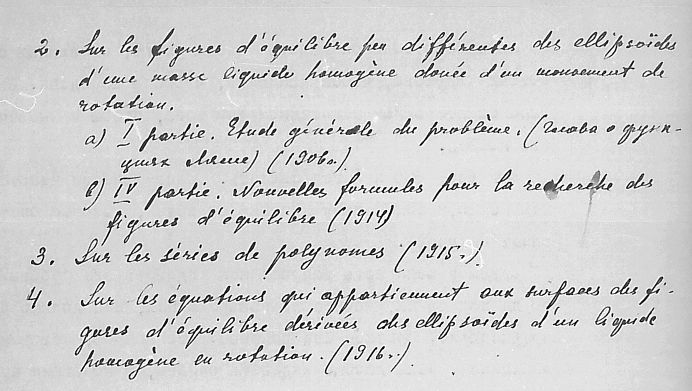 2. Sur les figures d'équilibre peu différentes des ellipsoïdes
d'une masse liquide homogène douée d'un mouvement de
rotation.
a) I partie. Etude générale du problème. (Глава о функ-
циях Ляме) (1906г.)
б) IV partie. Nouvelles formules pour la recherche des
figures d'équilibre (1914)
3. Sur les séries de polynomes (1915г.)
4. Sur les équations qui appartiennent aux surfaces des fi-
gures d'équilibre dérivées des ellipsoïdes d'un liquide
homogène en rotation. (1916г.)